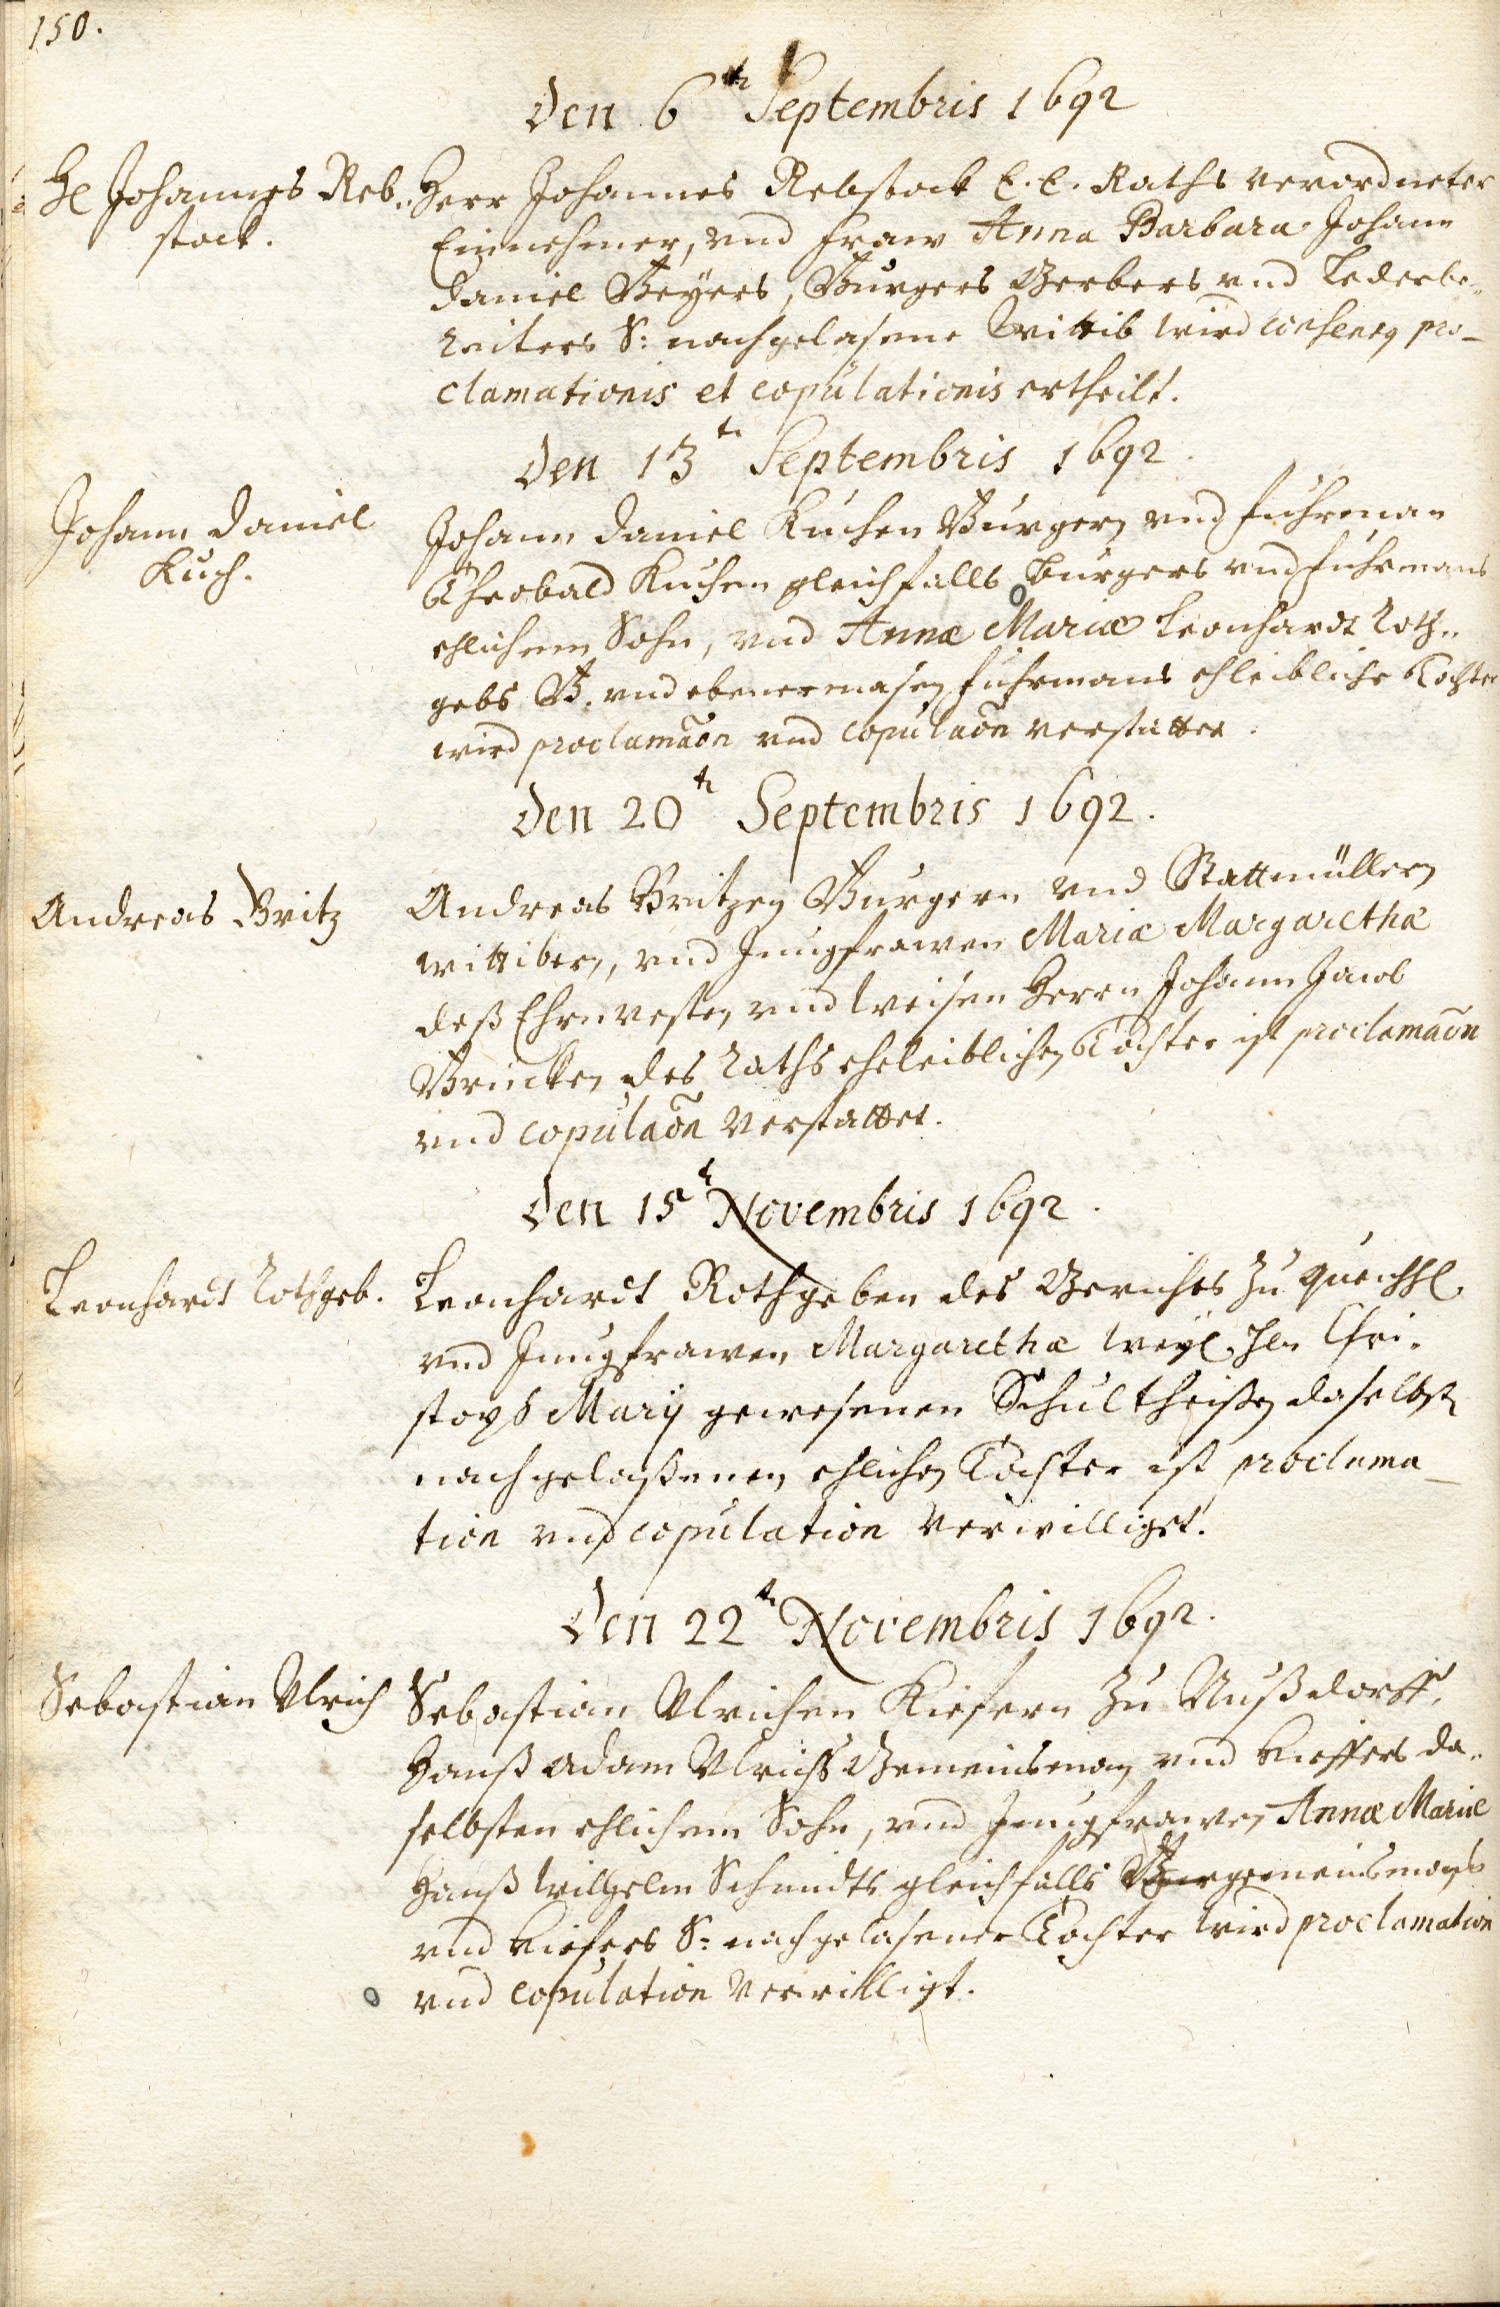 150.
Den 6t. Septembris 1692
H. Johannes Reb-
stock.
Herr Johannes Rebstock E. E. Raths verordneter
Einnehmer, vnd fraw Anna Barbara Johann
Daniel Beÿers, Burgers Gerbers vnd Lederbe-
reiters S: nachgelasene Wittib wird consens pro-
clamationis et copulationis ertheilt.
Den 13t Septembris 1692.
Johann Daniel
Kuch.
Johann Daniel Kuchen Burgern vnd fuhrman
Theobald Kuchen gleichfalls Burgers vnd fuhrmans
ehlichem Sohn, vnd Annæ Mariæ Leonhardt Roth-
gebs B. vnd ebenermasen fuhrmans ehleibliche Tochter
wird proclamaõn vnd copulaõn verstattet.
Den 20t Septembris 1692.
Andreas Britz
Andreas Britzen Burgern vnd Stattmüllern
wittibern, vnd Jungfrawen Mariæ Margarethæ
deß Ehrnvesten vnd Weisen Herrn Johann Jacob
Brincken des Raths eheleiblichen Tochter ist proclamaõn
vnd copulaõn verstattet.
Den 15t Novembris 1692.
Leonhardt Rothgeb.
Leonhardt Rothgeben des Gerichts zu Queichh.
vnd Jungfrawen Margarethæ weÿl. Hn Chri-
stoph Marÿ gewesenen Schultheißen daselbst
nachgelaßenen ehlichen Tochter ist proclama-
tion vnd copulation verwilliget.
Den 22t Novembris 1692.
Sebastian Vlrich
Sebastian Vlrichen Kiefern zu Nußdorff,
Hanß Adam Vlrichs Gemeinsman vnd Kieffers da-
selbsten ehlichem Sohn, vnd Jungfrawen Annæ Mariæ
Hanß Wilhelm Schmidts gleichfalls gemeinsmans
vnd Kiefers S: nachgelasener Tochter wird proclamation
vnd copulation verwilligt.